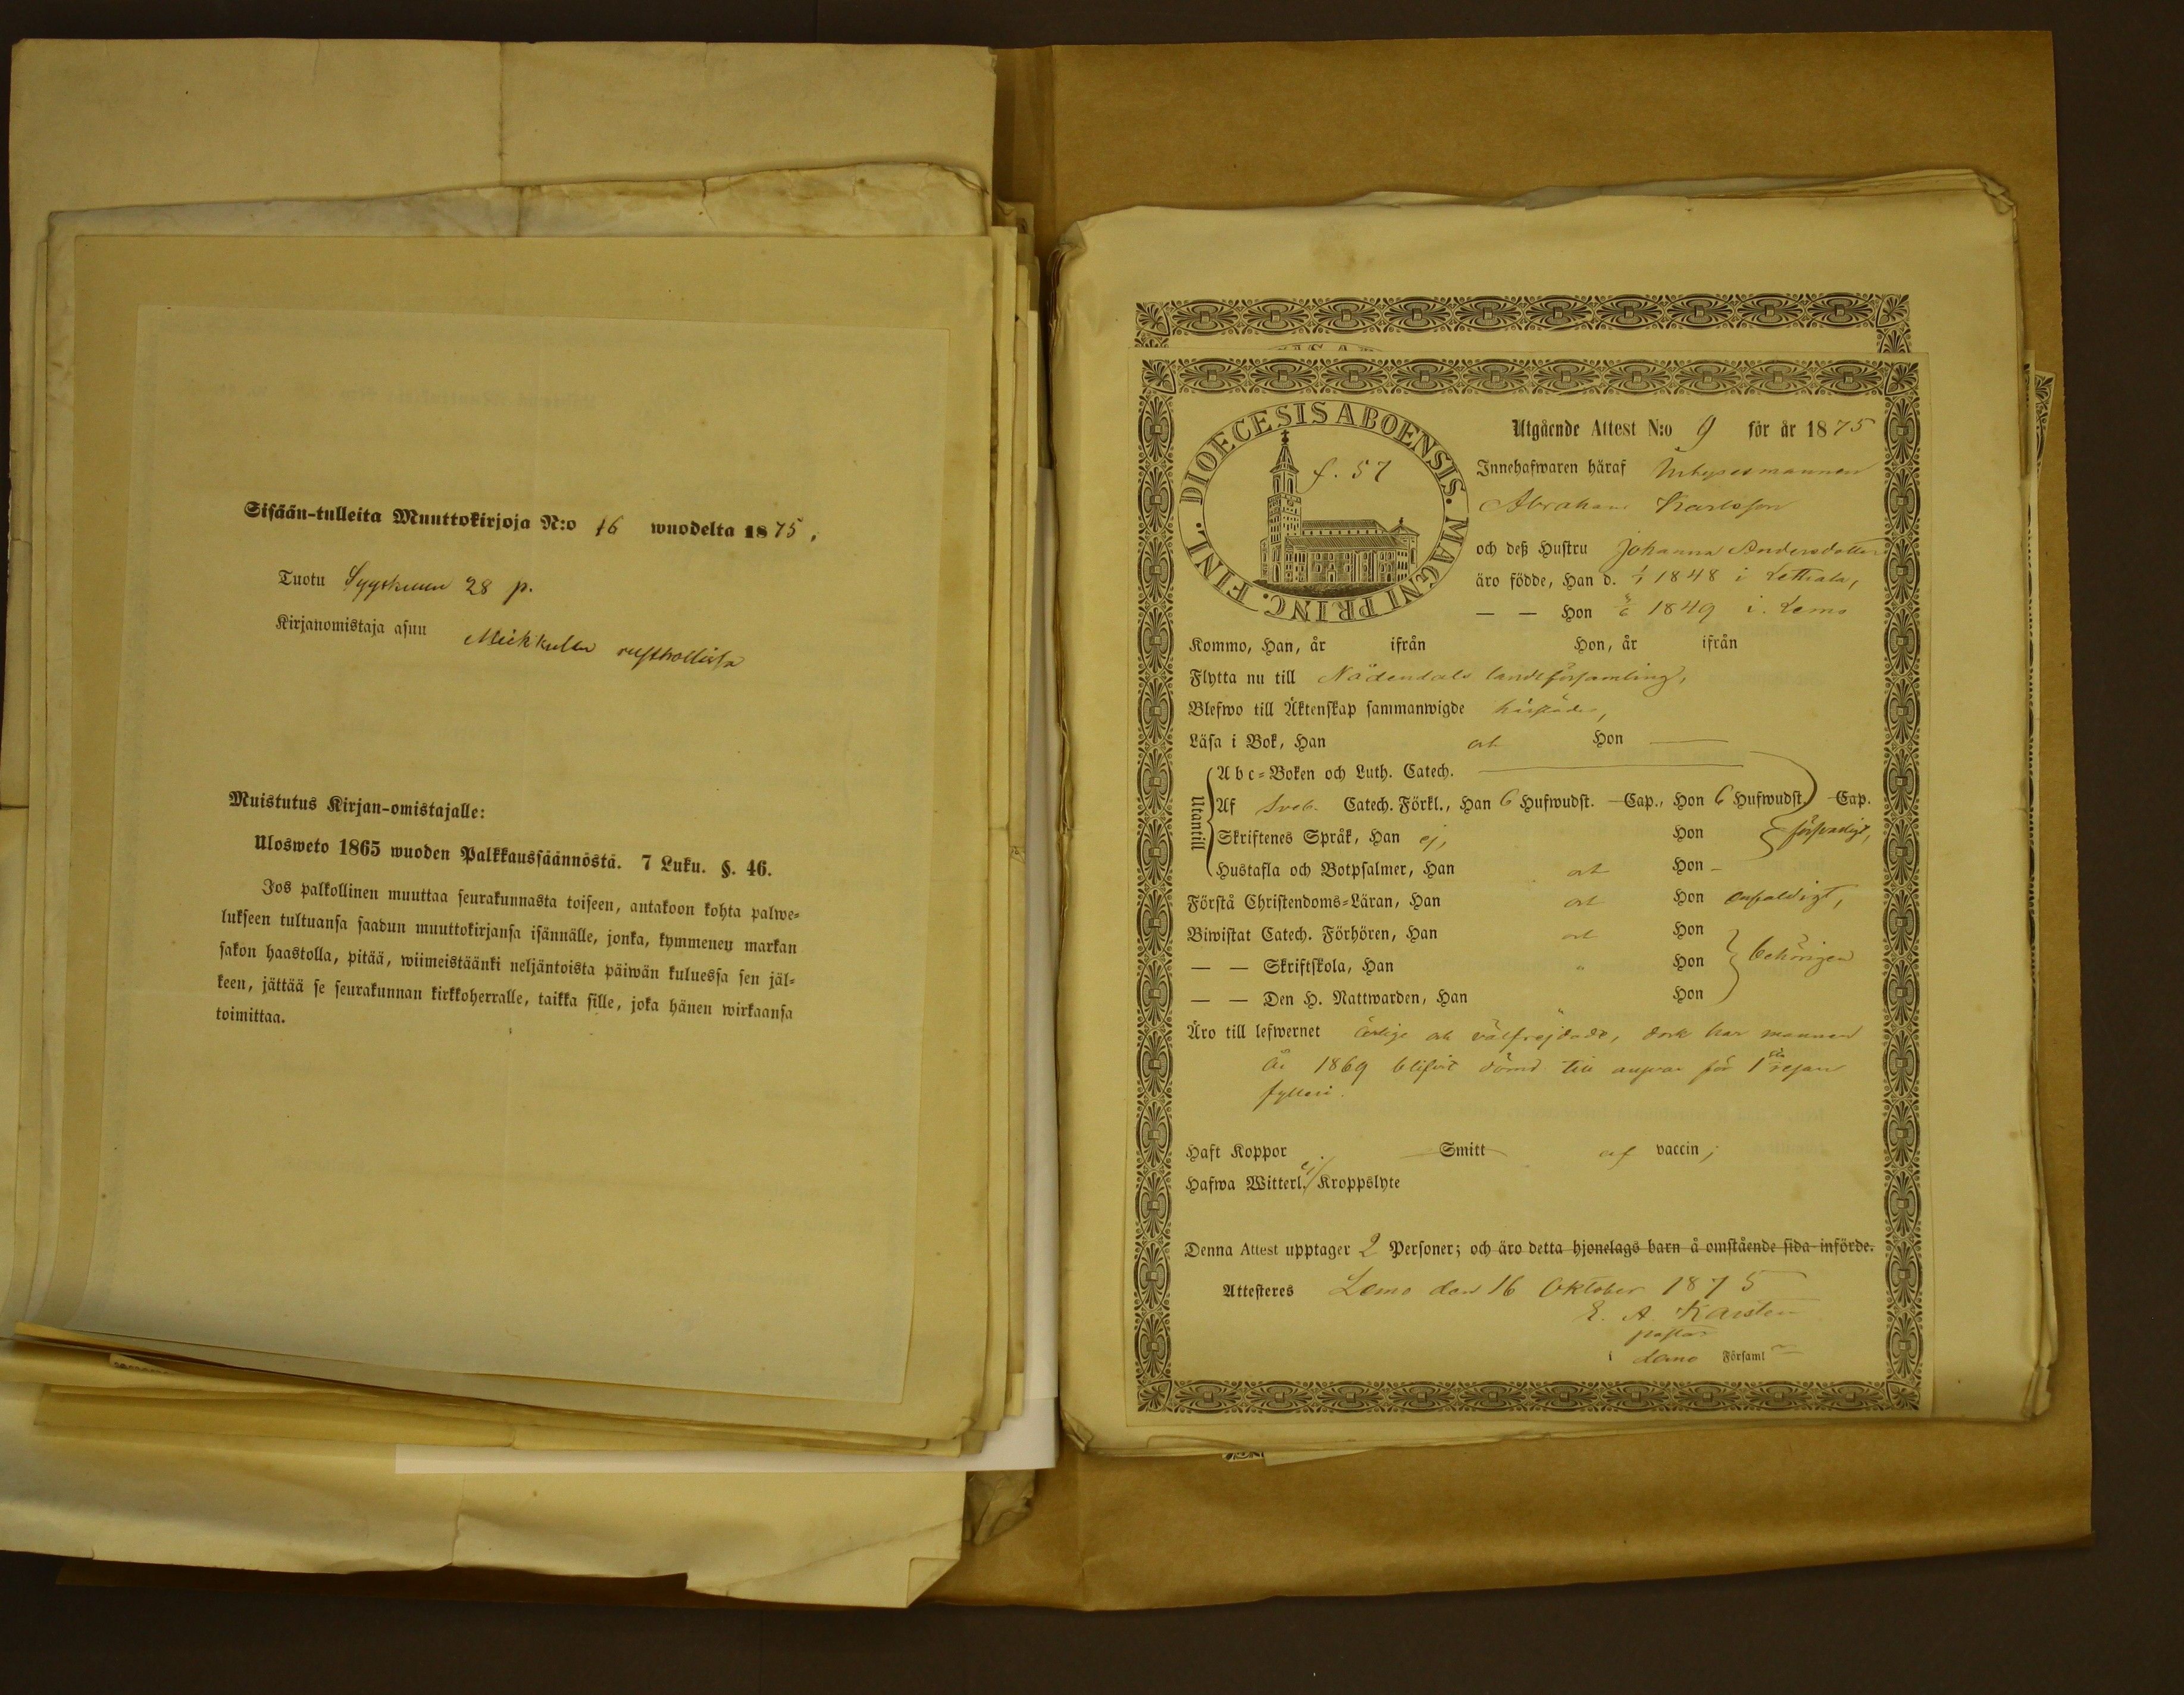 Sisään-tulleita Muuttokirjoja N:o 16 wuodelta 1875.
Tuotu Syyskuun 28 p.
Kirjanomistaja asuu Mickkulan rusthollissa
Muistutus Kirjan-omistajalle:
Ulosweto 1865 wuoden Palkkaussäännöstä. 7 Luku. §. 46.
Jos palkollinen muuttaa seurakunnasta toiseen, antakoon kohta palwe=
lukseen tultuansa saadun muuttokirjansa isännälle, jonka, kymmenen markan
sakon haastolla, pitää, wiimeistäänki neljäntoista päiwän kuluessa sen jäl=
keen, jättää se seurakunnan kirkkoherralle, taikka sille, joka hänen wirkaansa
toimittaa.
DIOECESIS ABOENSIS. MAGNI PRINC. FINL.
f. 57
Utgående Attest N:o 9 för år 1875
Innehafwaren häraf Inhysesmannen
Abraham Karlsson
och deß Hustru Johanna Andersdotter
äro födde, Han d. 1848 i Lethala,
— — Hon 1849 i Lemo
Kommo, Han, år ifrån Hon, år ifrån
Flytta nu till Nådendals landsförsamling,
Blefwo till Äktenskap sammanwigde härstädes,
Läsa i Bok, Han och Hon —
Utantill
Abc=Boken och Luth. Catech. —
Af Sveb. Catech. Förkl., Han 6 Hufwudst. — Cap., Hon 6 Hufwudst. — Cap.
Skriftenes Språk, Han ej, Hon försvarligt,
Hustafla och Botpsalmer, Han och Hon —
Förstå Christendoms=Läran, Han och Hon enfaldigt,
Biwistat Catech. Förhören, Han och Hon
— — Skriftskola, Han " Hon behörigen
— — Den H. Nattwarden, Han " Hon
Äro till lefwernet ärlige och välfrejdade, dock har mannen
år 1869 blifvit dömd till answar för 1sta resan
fylleri.
Haft Koppor Smitt af vaccin;
Hafwa Witterl. ej Kroppslyte
Denna Attest upptager 2 Personer; och äro detta hjonelags barn å omstående sida införde.
Attesteres Lemo den 16 Oktober 1875
E. A. Karsten
pastor
i Lemo Församl